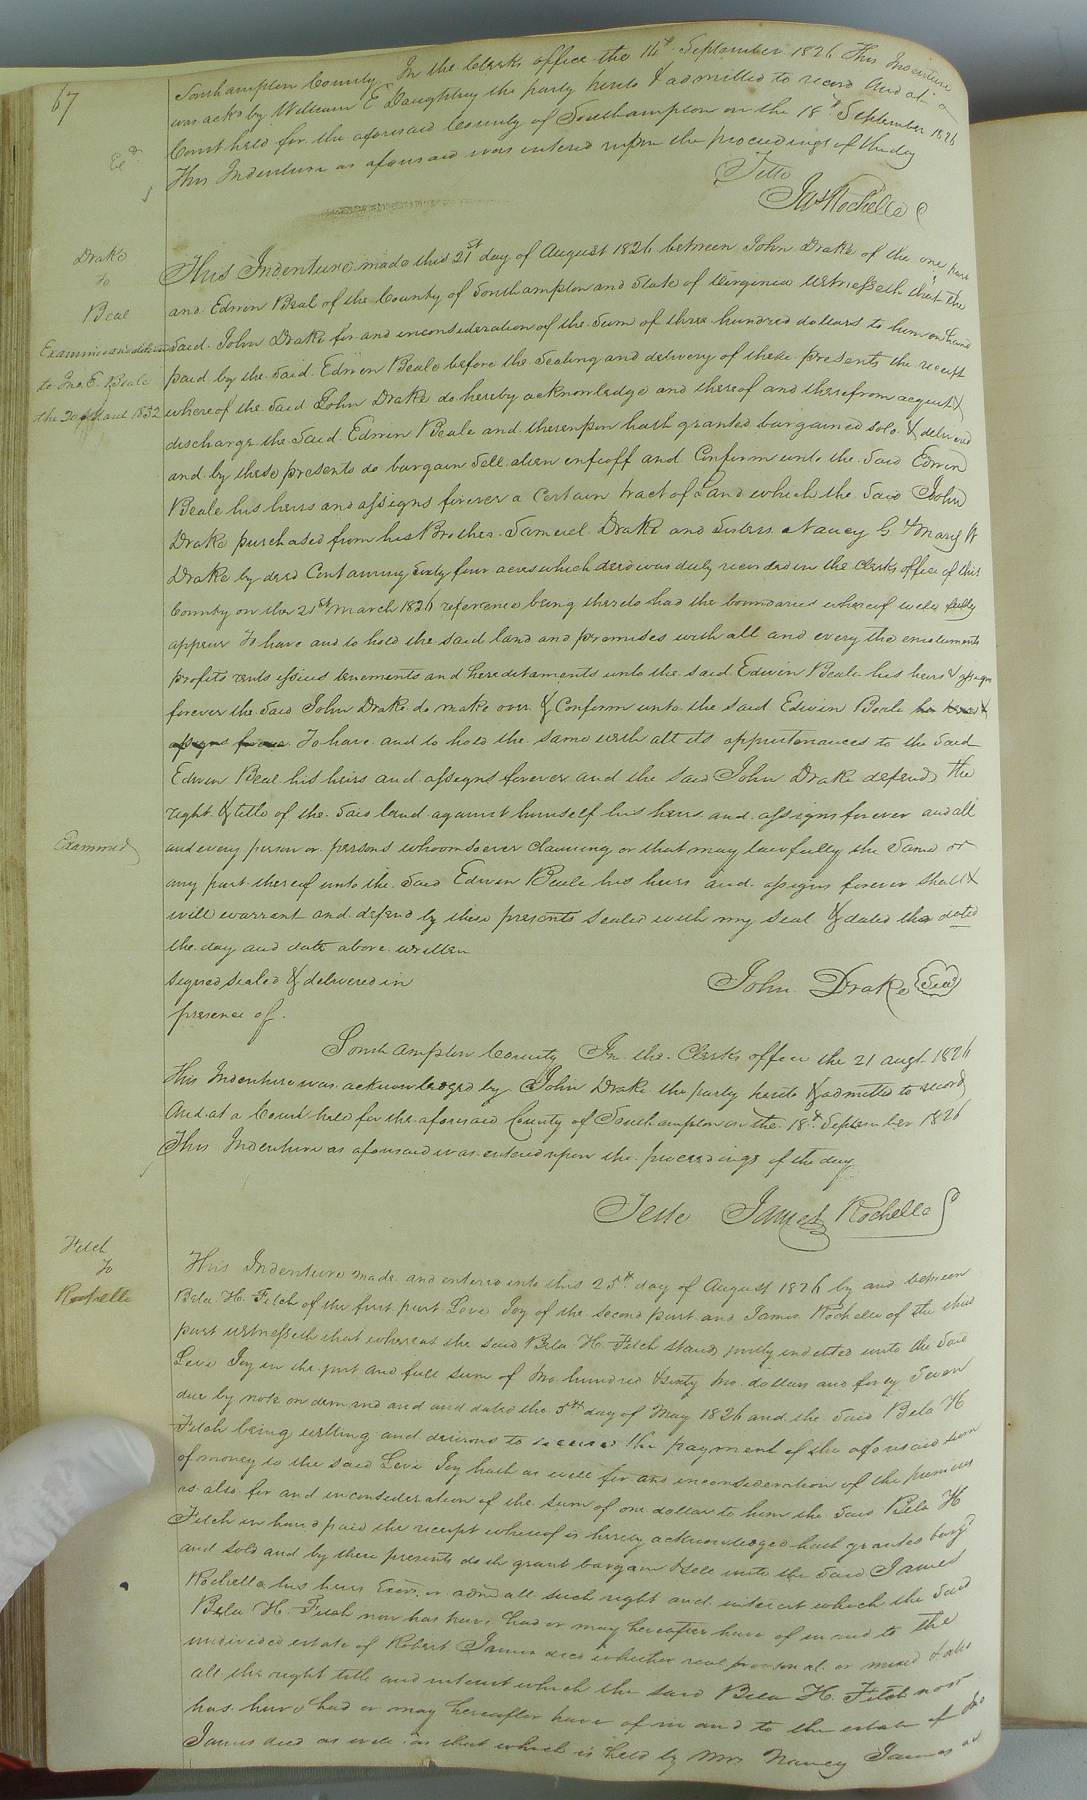 67
Southampton County In the Clerks office the 14th September 1826 This Indenture
was ackd by William E Daughtrey the party hereto & admitted to record And at a
Court held for the aforesaid County of Southampton on the 18th September 1826
This Indenture as aforesaid was entered upon the proceedings of the day
Teste
Jas Rochelle
Exd
Drake
to
Beal
Examined and delivered
to Jno. E. Beale
the 1832
This Indenture made this 21st day of August 1826 between John Drake of the one part
and Edwin Beal of the County of Southampton and State of Virginia Witnesseth that the
Said John Drake for and inconsideration of the Sum of three hundred dollars to him on hand
paid by the Said Edwin Beale before the Sealing and delivery of these presents the receipt
whereof the Said John Drake do hereby acknowledge and thereof and therefrom acquit &
discharge the Said Edwin Beale and thereupon hath granted bargained sold & delivered
and by these presents do bargain Sell alien enfeoff and Confirm unto the Said Edwin
Beale his heirs and assigns forever a Certain tract of Land which the Said John
Drake purchased from his Brother Samuel Drake and Sisters Nancy G. & Mary W
Drake by deed Containing Sixty four acres which deed was duly recorded in the Clerks office of this
County on the 21st March 1826 reference being thereto had the boundaries whereof will fully
appear To have and to hold the said land and premises with all and every the emoluments
profits rents issues tenements and hereditaments unto the said Edwin Beale his heirs & assigns
forever the Said John Drake do make over & Confirm unto the said Edwin Beale his heirs &
assigns forever To have and to hold the same with all its appurtenances to the Said
Edwin Beal his heirs and assigns forever and the said John Drake defend the
right & title of the Said land against himself his heirs and assigns forever and all
and every person or persons whoomsoever Claiming or that may lawfully the Same or
any part thereof unto the Said Edwin Beale his heirs and assigns forever shall &
will warrant and defend by these presents sealed with my seal & dated the dated
the day and date above written
Examined
signed sealed & delivered in
presence of
John Drake Seal
Southampton County In the Clerks office the 21 augt 1826
This Indenture was acknowledged by John Drake the party hereto & admitted to record
And at a Court held for the aforesaid County of Southampton on the 18th September 1826
This Indenture as aforesaid was entered upon the proceedings of the day
Teste James Rochelle
Fitch
To
Rochelle
This Indenture made and entered into this 25th day of August 1826 by and between
Bela H. Fitch of the first part Levi Joy of the second part and James Rochelle of the third
part witnesseth that whereas the said Bela H. Fitch stands justly indebted unto the Said
Levi Joy in the just and full sum of two hundred & sixty two dollars and forty Seven
due by note on demand and and dated the 5th day of May 1826 and the Said Bela H
Fitch being willing and desirous to secure the payment of the aforesaid sum
of money to the said Levi Joy hath as well for and inconsideration of the premises
as also for and inconsideration of the sum of one dollar to him the Said Bela H
Fitch in hand paid the receipt whereof is hereby acknowledged hath granted bargd
and sold and by these presents doth grant bargain & sell unto the Said James
Rochelle his heirs Exors or admrs all such right and interest which the Said
Bela H. Fitch now has have had or may hereafter have of in and to the
undivided estate of Robert James decd whether real personal or mixed & also
all the right title and interest which the said Bela H. Fitch now
has have had or may hereafter have of in and to the estate of
James decd as well as that which is held by Mrs Nancy James